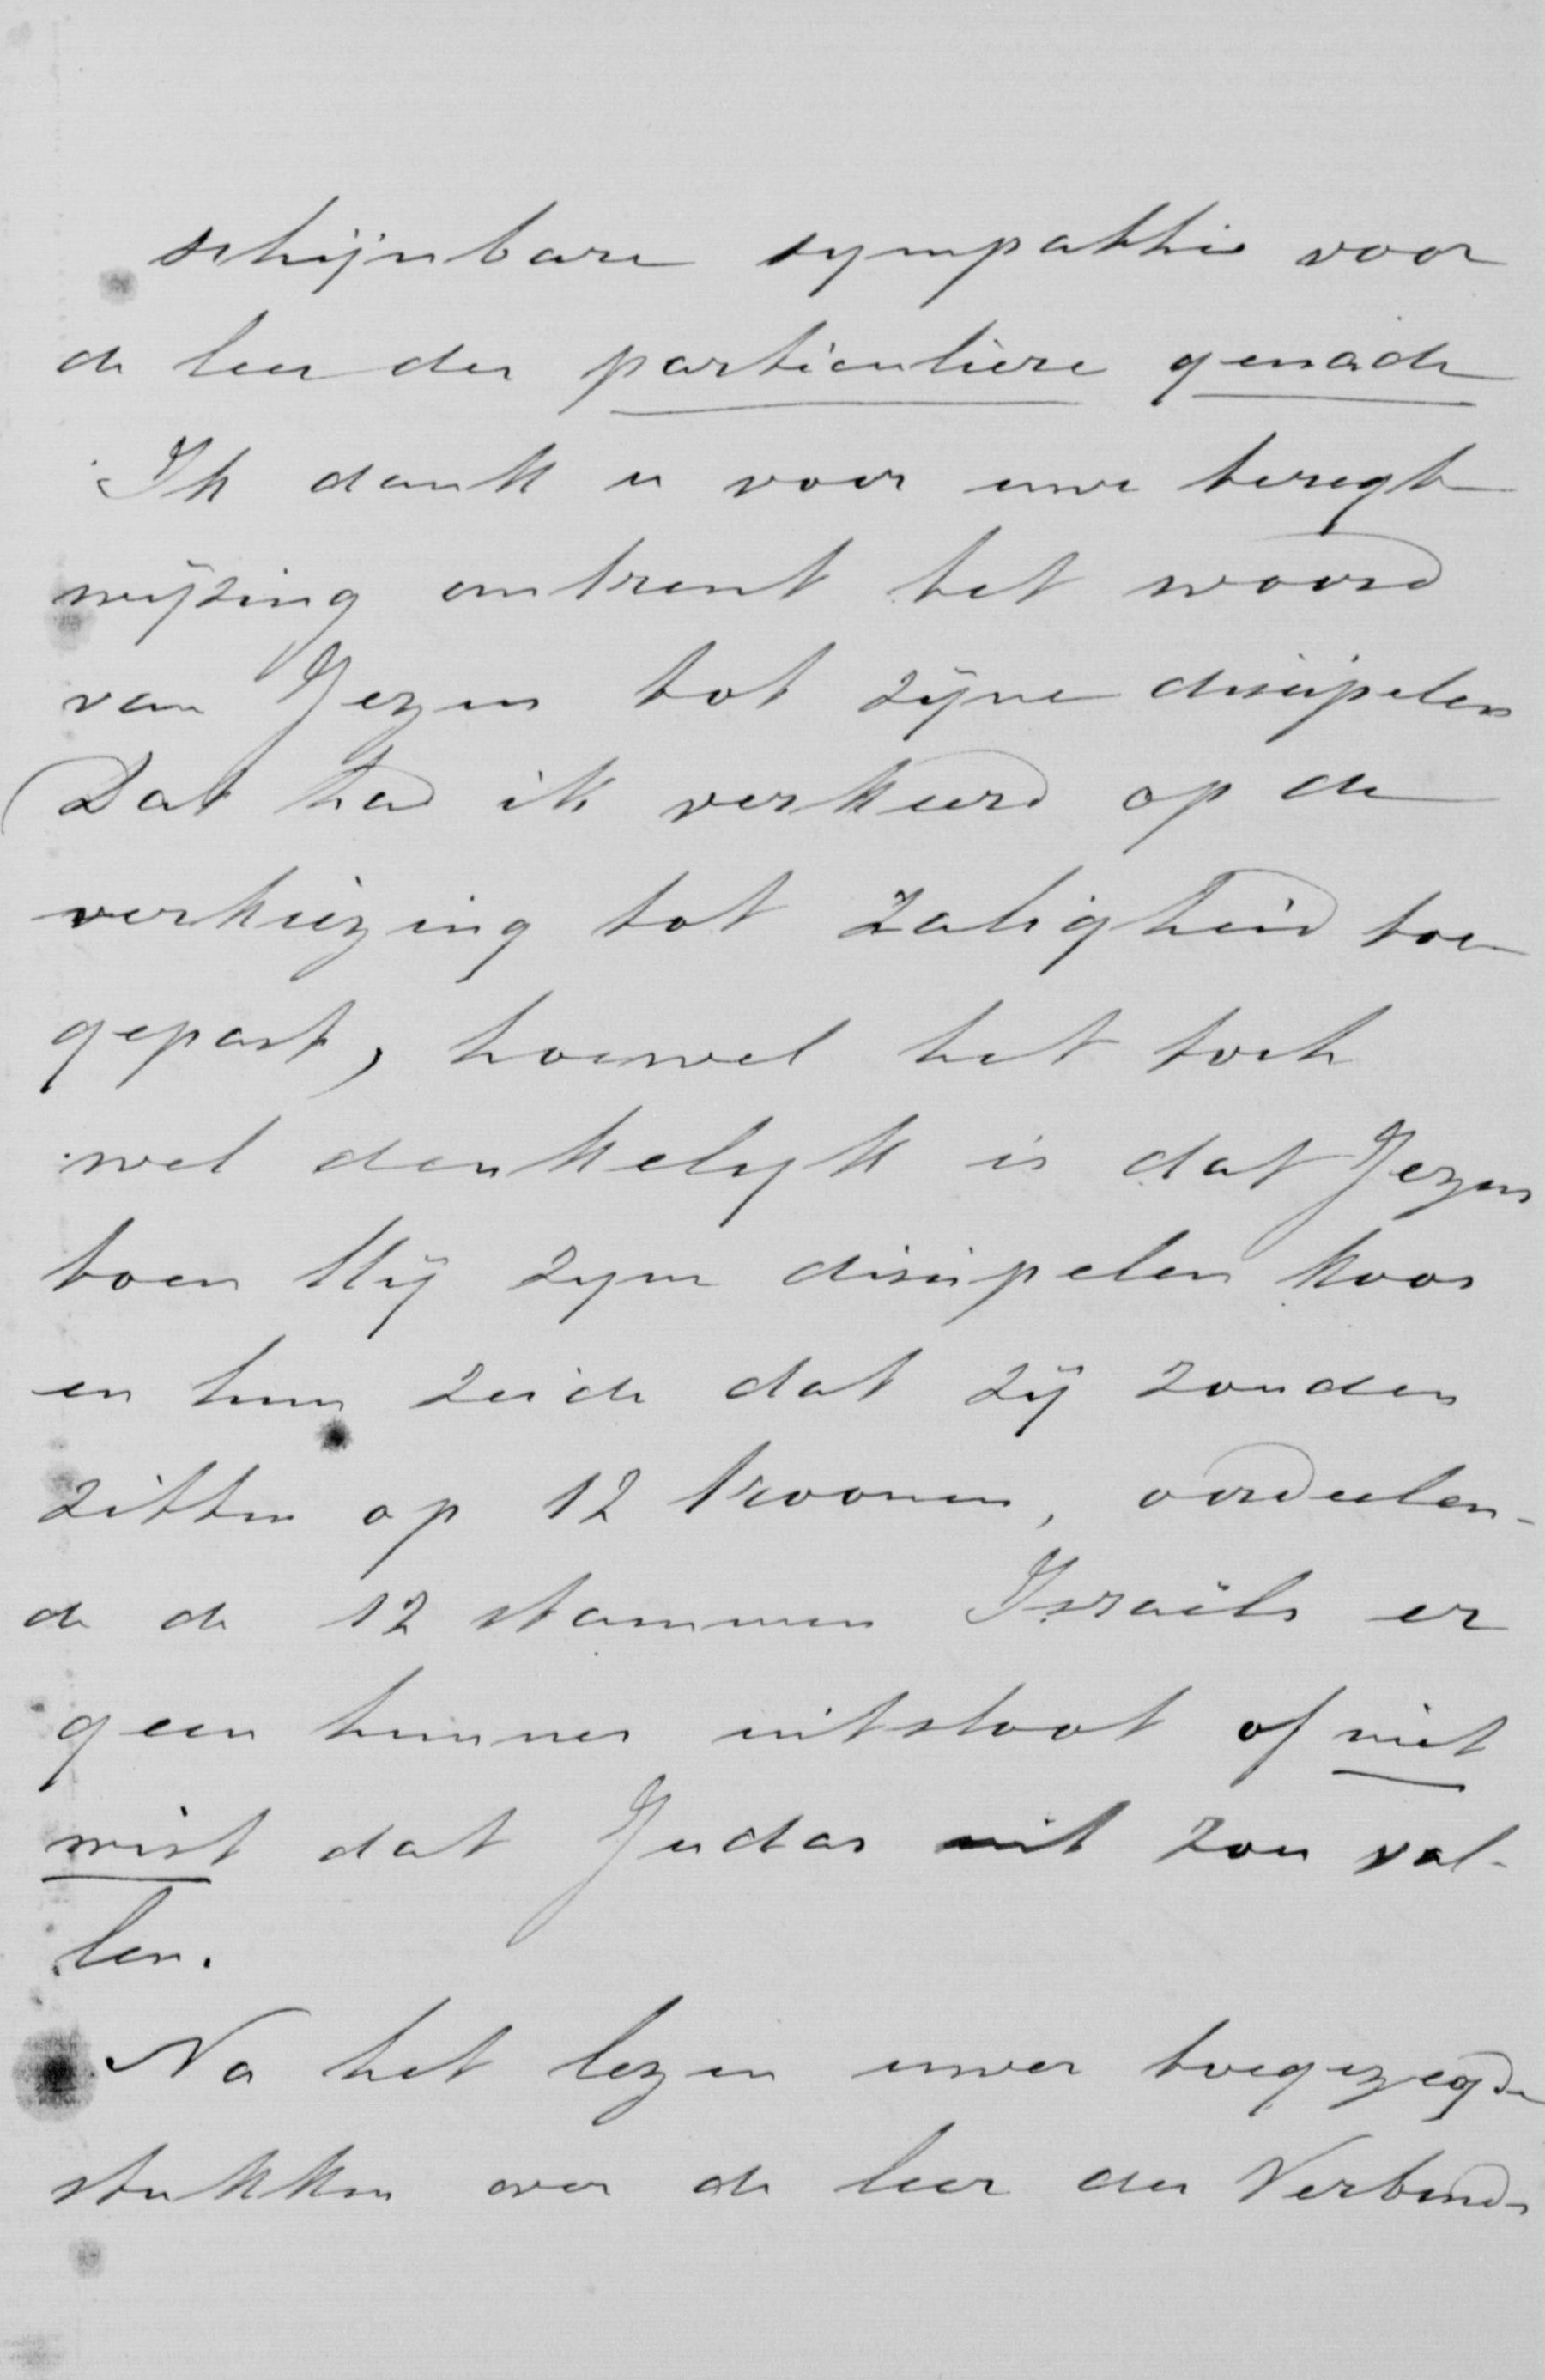 schijnbare sympathie voor
de leer der particuliere genade
Ik dank u voor uwe teregt
wijzing omtrent het woord
van Jezus tot zijne discipelen
Dat had ik verkeerd op de
verkiezing tot zaligheid toe
gepast, hoewel het toch
wel denkelijk is dat Jezus
toen Hij zijne discipelen koos
en hun zeide dat zij zouden
zitten op 12 troonen, oordeelen-
de de 12 stammen Israëls er
geen hunner uitsloot of niet
wist dat Judas uit zou val-
len.
Na het lezen uwer toegezegde
stukken over de leer der Verbonds